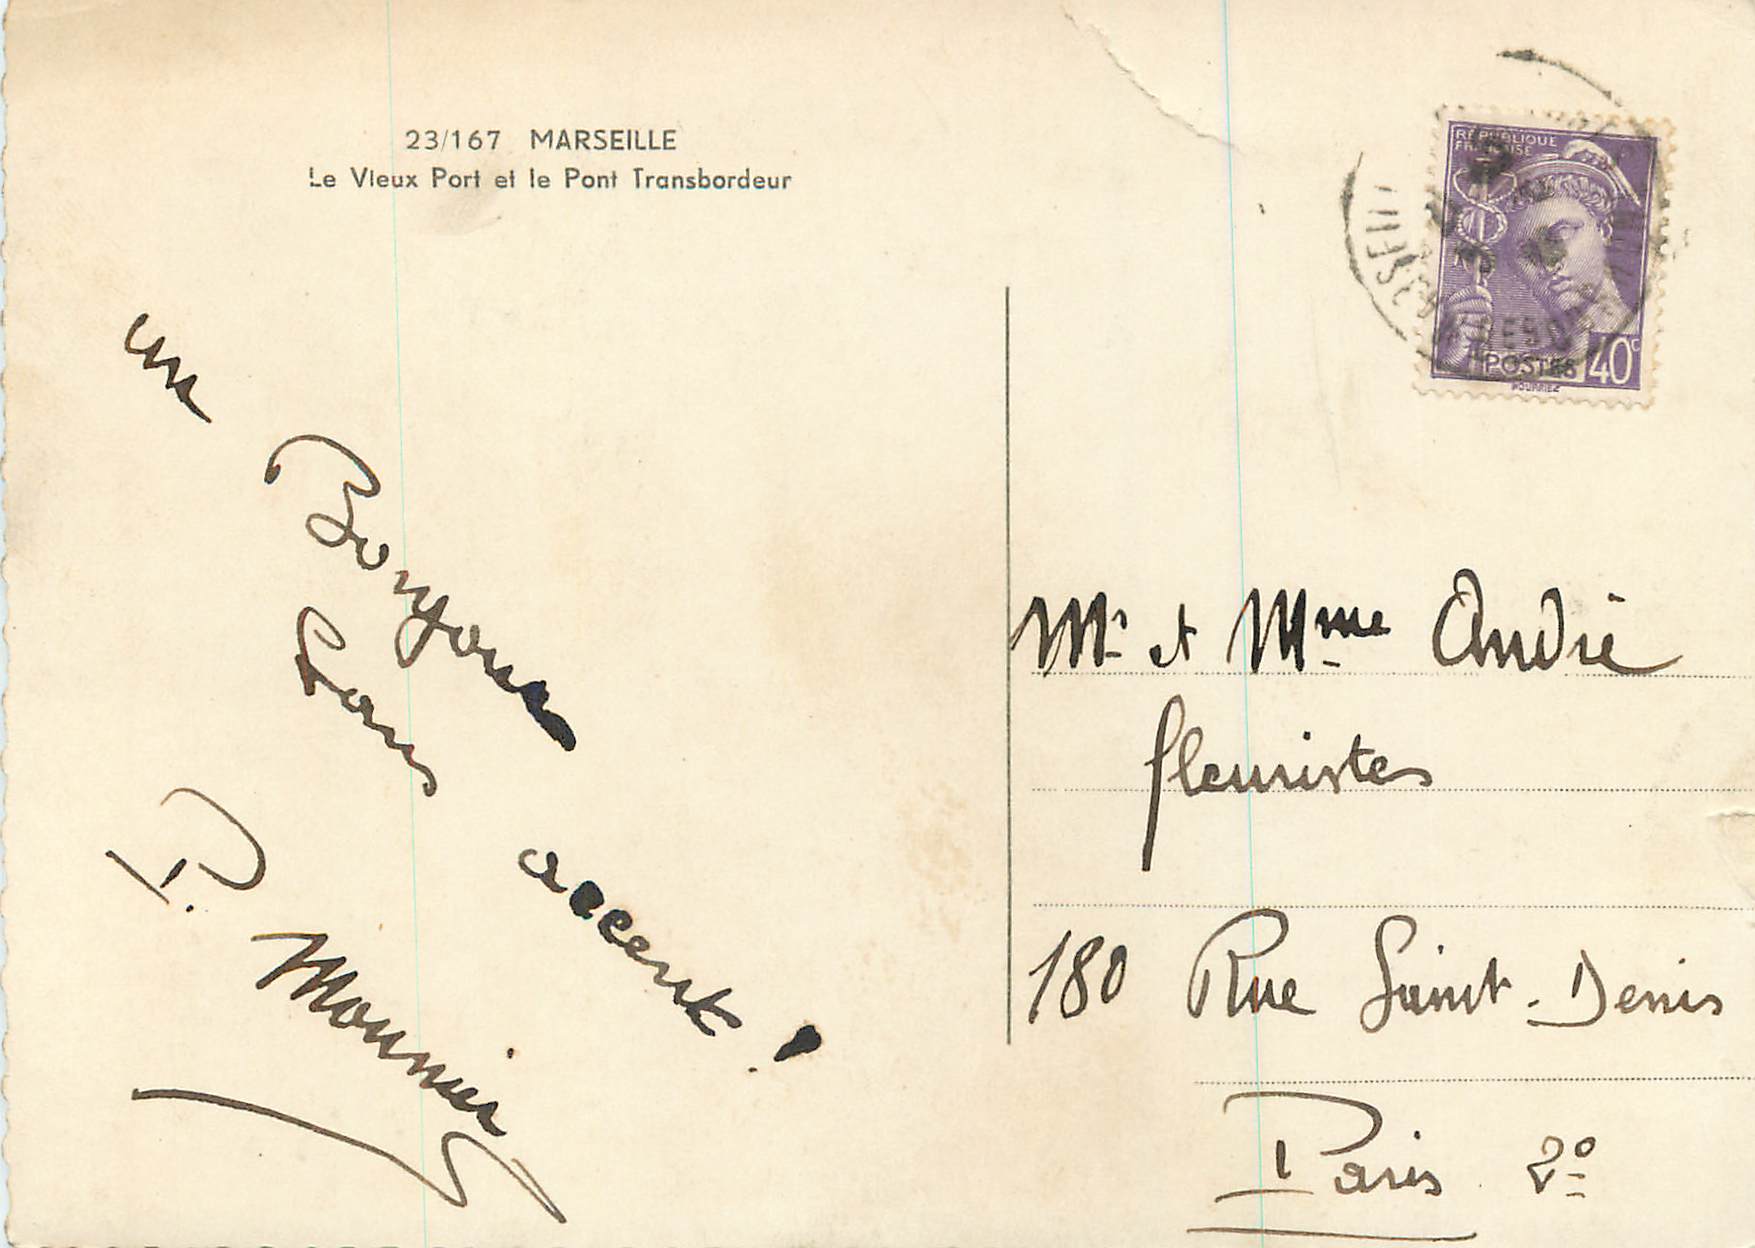 23/167 MARSEILLE
Le Vieux Port et le Pont Transbordeur
un
Bonjour
sans
accent !
P. Mounier
RÉPUBLIQUE
FRANÇAISE
POSTES
40c
Mr et Mme André
fleuristes
180 Rue Saint-Denis
Paris 2e